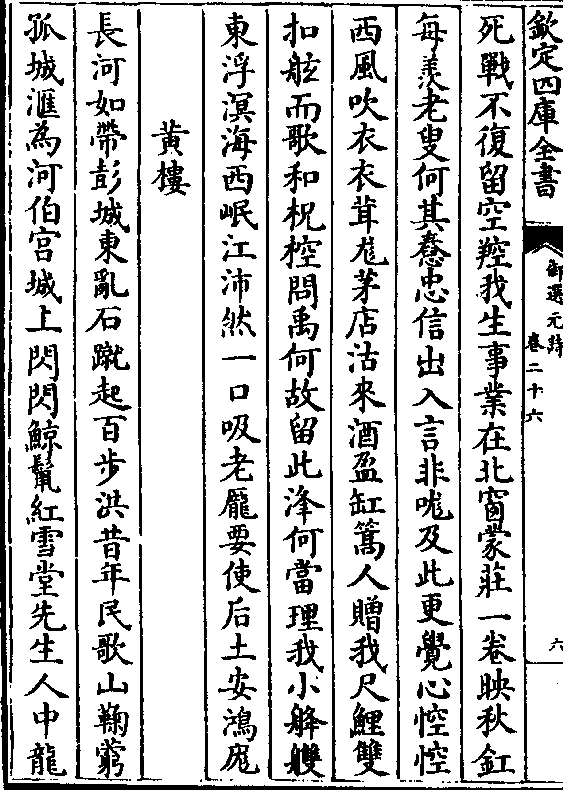 欽定四庫全書
御選元詩
卷二十六
六
死戰不復留空羫我生事業在北窗蒙莊一卷映秋釭
每羨老叟何其惷忠信出入言非哤及此更覺心悾悾
西風吹衣衣茸尨茅店沽來酒盈缸篙人贈我尺鯉雙
扣舷而歌和柷椌問禹何故留此洚何當理我小艂艭
東浮溟海西岷江沛然一口吸老龐要使后土安鴻庬
黄樓
長河如帶彭城東亂石蹴起百步洪昔年民歌山鞠藭
孤城滙為河伯宫城上閃閃鯨鬛紅雪堂先生人中龍